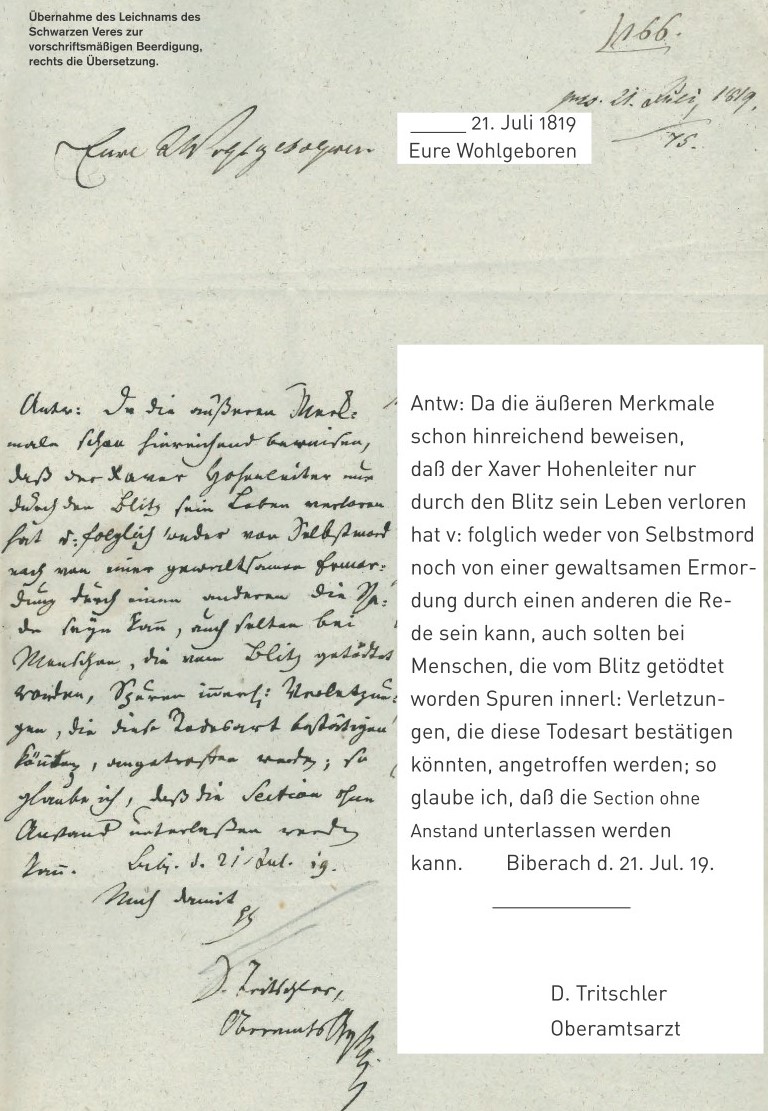 Übernahme des Leichnams des
Schwarzen Veres zur
vorschriftsmäßigen Beerdigung,
rechts die Übersetzung.
166.
21. Juli, 1819.
75.
Eure Wohlgeboren
21. Juli 1819
Eure Wohlgeboren
Antw: Da die äußeren Merk=
male schon hinreichend beweisen,
daß der Xaver Hohenleiter nur
durch den Blitz sein Leben verloren
hat v: folglich weder von Selbstmord
noch von einer gewaltsamen Ermor=
dung durch einen anderen die Re=
de seyn kann, auch selten bei
Menschen, die vom Blitz getödtet
worden, Spuren innerl: Verletzun=
gen, die diese Todesart bestätigen
könnten, angetroffen werden; so
glaube ich, daß die Section ohne
Anstand unterlaßen werden
kann. Bib. d. 21 Jul. 19.
D. Tritschler,
Oberamts
Antw: Da die äußeren Merkmale
schon hinreichend beweisen,
daß der Xaver Hohenleiter nur
durch den Blitz sein Leben verloren
hat v: folglich weder von Selbstmord
noch von einer gewaltsamen Ermor-
dung durch einen anderen die Re-
de sein kann, auch solten bei
Menschen, die vom Blitz getödtet
worden Spuren innerl: Verletzun-
gen, die diese Todesart bestätigen
könnten, angetroffen werden; so
glaube ich, daß die Section ohne
Anstand unterlassen werden
kann. Biberach d. 21. Jul. 19.
D. Tritschler
Oberamtsarzt